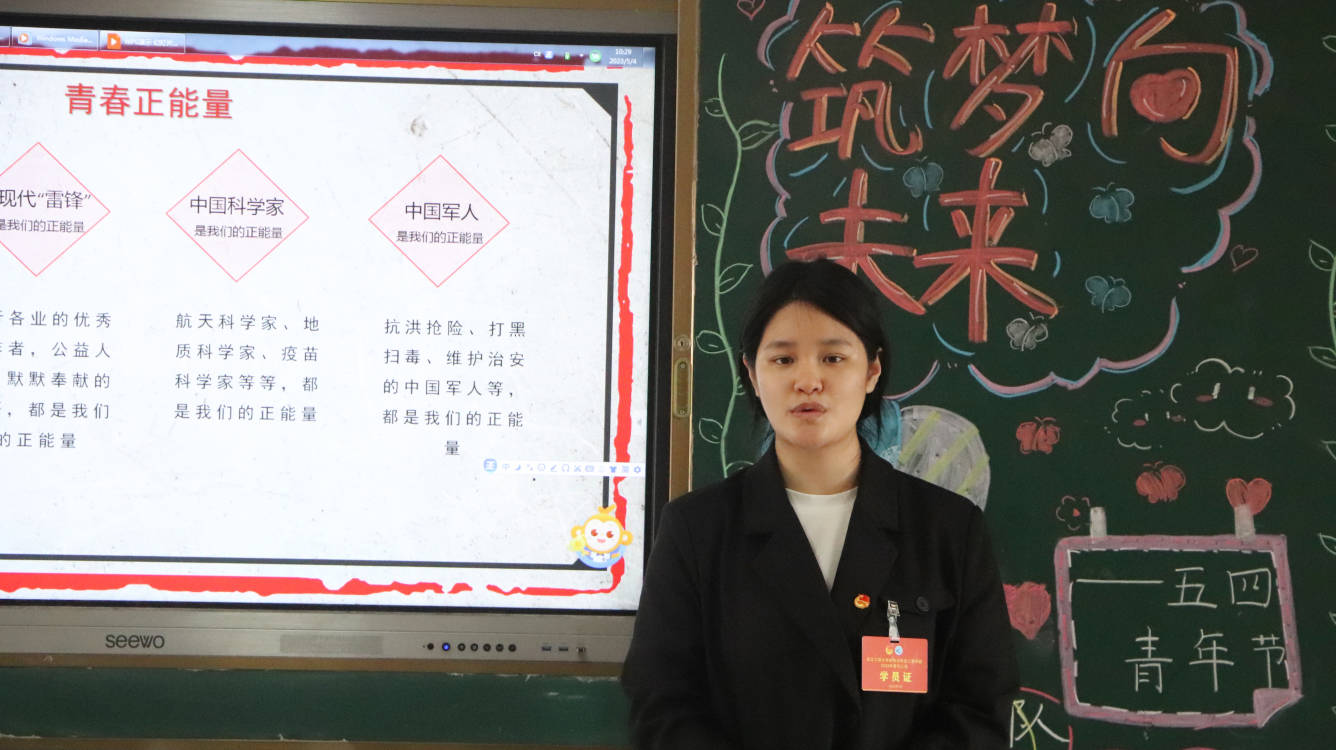 Windows Media...
10:29
2023/5/4
青春正能量
现代“雷锋”
是我们的正能量
中国科学家
是我们的正能量
中国军人
是我们的正能量
各业的优秀
者，公益人
默默奉献的
，都是我们
的正能量
航天科学家、地
质科学家、疫苗
科学家等等，都
是我们的正能量
抗洪抢险、打黑
扫毒、维护治安
的中国军人等，
都是我们的正能
量
中
seewo
筑梦向
未来
——五四
青年节
队
学员证